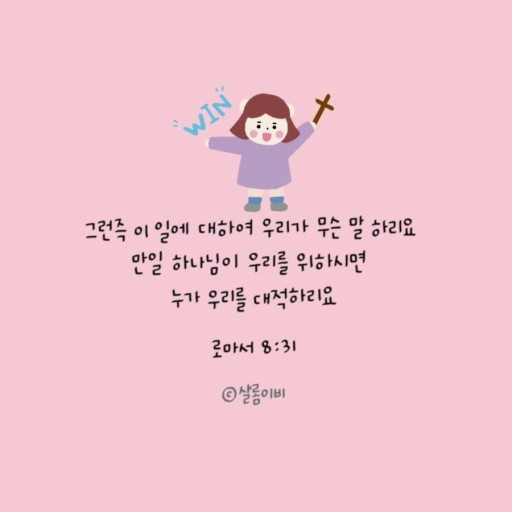 WIN
그런즉 이 일에 대하여 우리가 무슨 말 하리요
만일 하나님이 우리를 위하시면
누가 우리를 대적하리요
로마서 8:31
©살롬이비